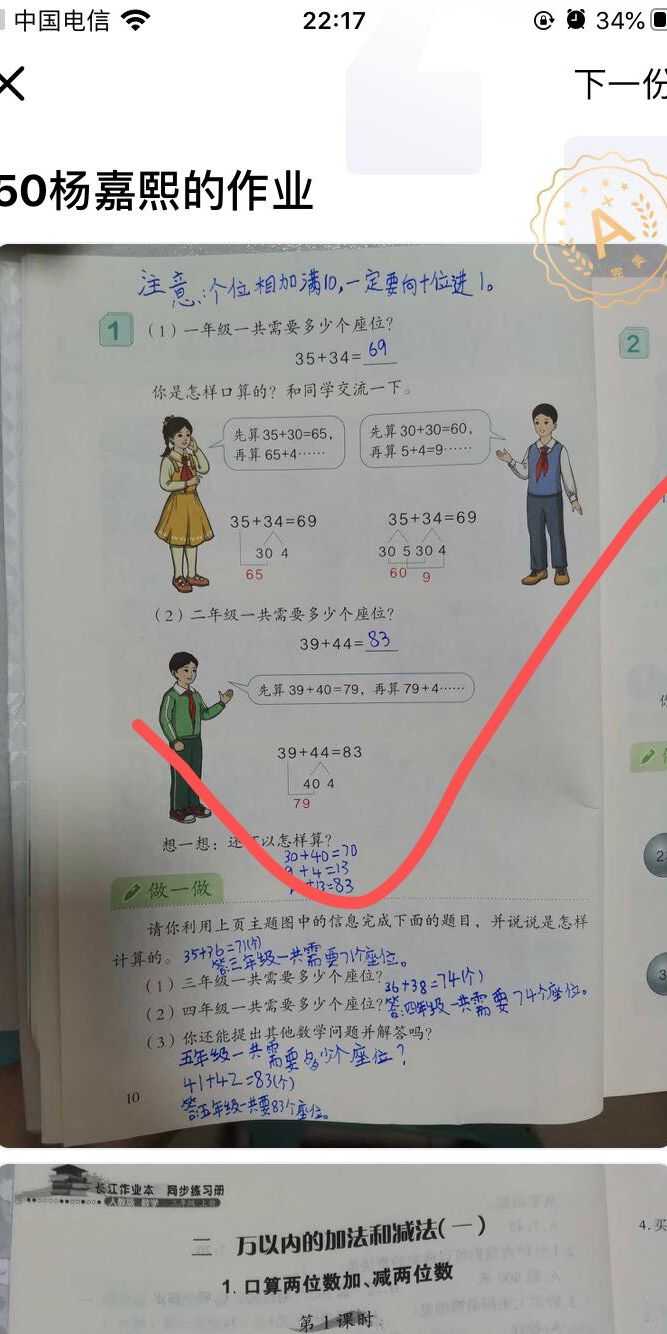 中国电信
22:17
34%
下一份
50杨嘉熙的作业
A
注意:个位相加满10,一定要向十位进1。
1
(1)一年级一共需要多少个座位?
2
35+34=69
你是怎样口算的?和同学交流一下。
先算35+30=65,
再算65+4……
先算30+30=60,
再算5+4=9……
35+34=69
30 4
65
35+34=69
30 5 30 4
60 9
(2)二年级一共需要多少个座位?
39+44=83
先算39+40=79,再算79+4……
39+44=83
40 4
79
想一想:还可以怎样算?
30+40=70
9+4=13
+13=83
做一做
请你利用上页主题图中的信息完成下面的题目,并说说是怎样
计算的。
35+36=71(个)
答:三年级一共需要71个座位。
(1)三年级一共需要多少个座位?
36+38=74(个)
(2)四年级一共需要多少个座位?
答:四年级一共需要74个座位。
(3)你还能提出其他数学问题并解答吗?
五年级一共需要多少个座位?
41+42=83(个)
答:五年级一共要83个座位。
10
2
3
长江作业本 同步练习册
人教版 数学 三年级 上册
二 万以内的加法和减法(一)
1. 口算两位数加、减两位数
第1课时
4.买